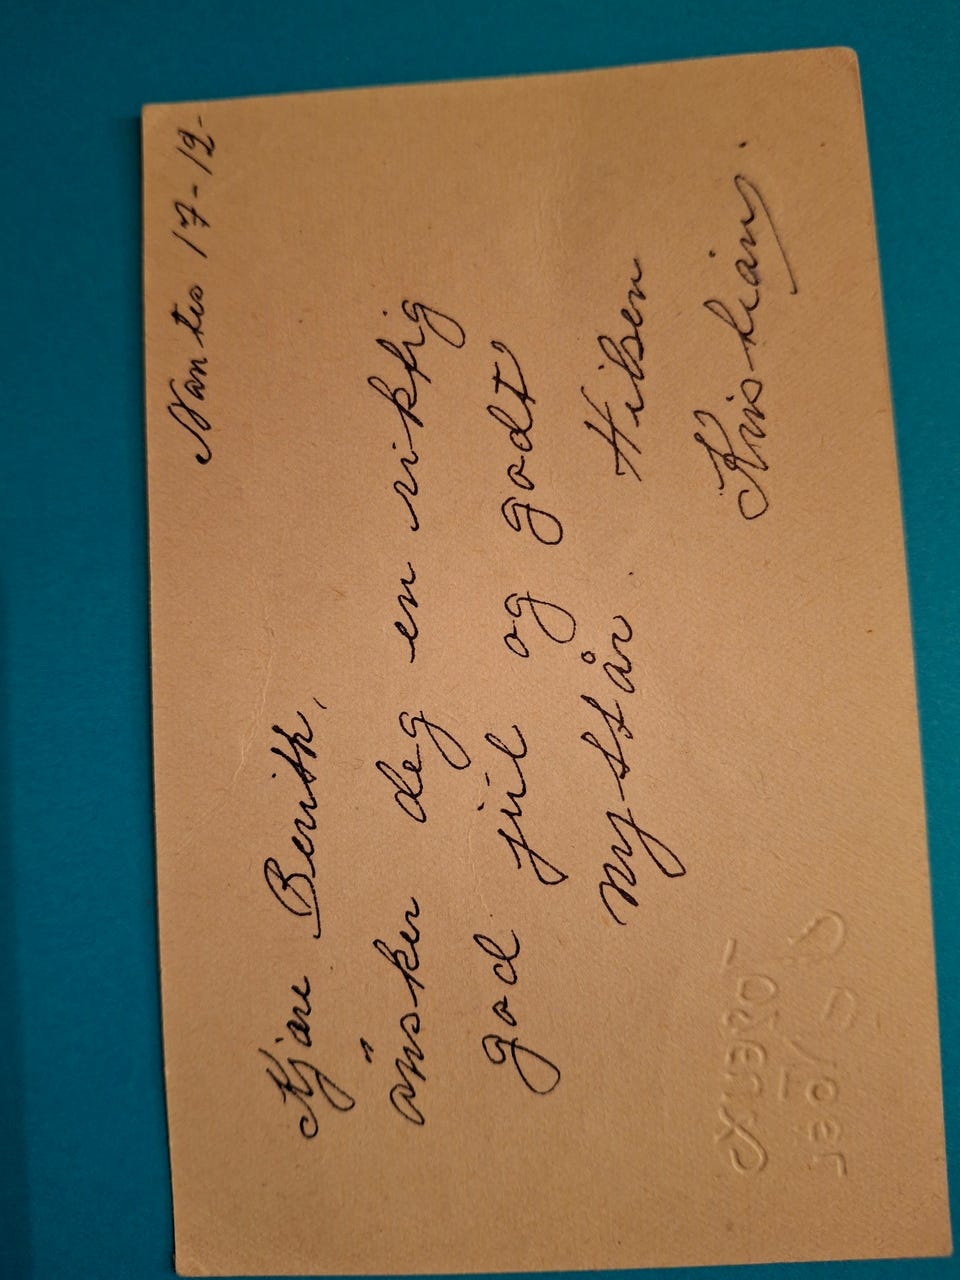 Nantes 17-12-
Kjære Berith,
önsker deg en riktig
god jul og godt
nyttår. Hilsen
Kristian.
Joyeux
Noël